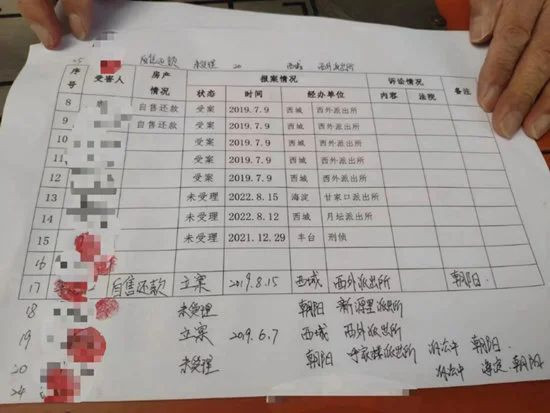 25 自售还款 未受理 20 西城 西外派出所
序号 受害人 房产情况 报案情况 诉讼情况 备注
状态 时间 经办单位 内容 法院
8 自售还款 受案 2019.7.9 西城 西外派出所
9 自售还款 受案 2019.7.9 西城 西外派出所
10 受案 2019.7.9 西城 西外派出所
11 受案 2019.7.9 西城 西外派出所
12 受案 2019.7.9 西城 西外派出所
13 未受理 2022.8.15 海淀 甘家口派出所
14 未受理 2022.8.12 西城 月坛派出所
15 未受理 2021.12.29 丰台 刑侦
16
17 自售还款 立案 2019.8.15 西城 西外派出所 朝阳.
18 未受理 朝阳 新源里派出所
19 立案 2019.6.7 西城 西外派出所
20 未受理 朝阳 呼家楼派出所 朝阳
24 海淀.朝阳